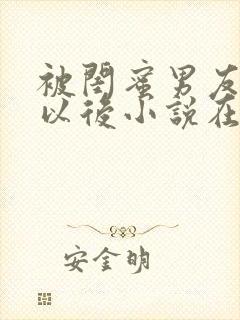 被閨蜜男友
以後小說在
安金明